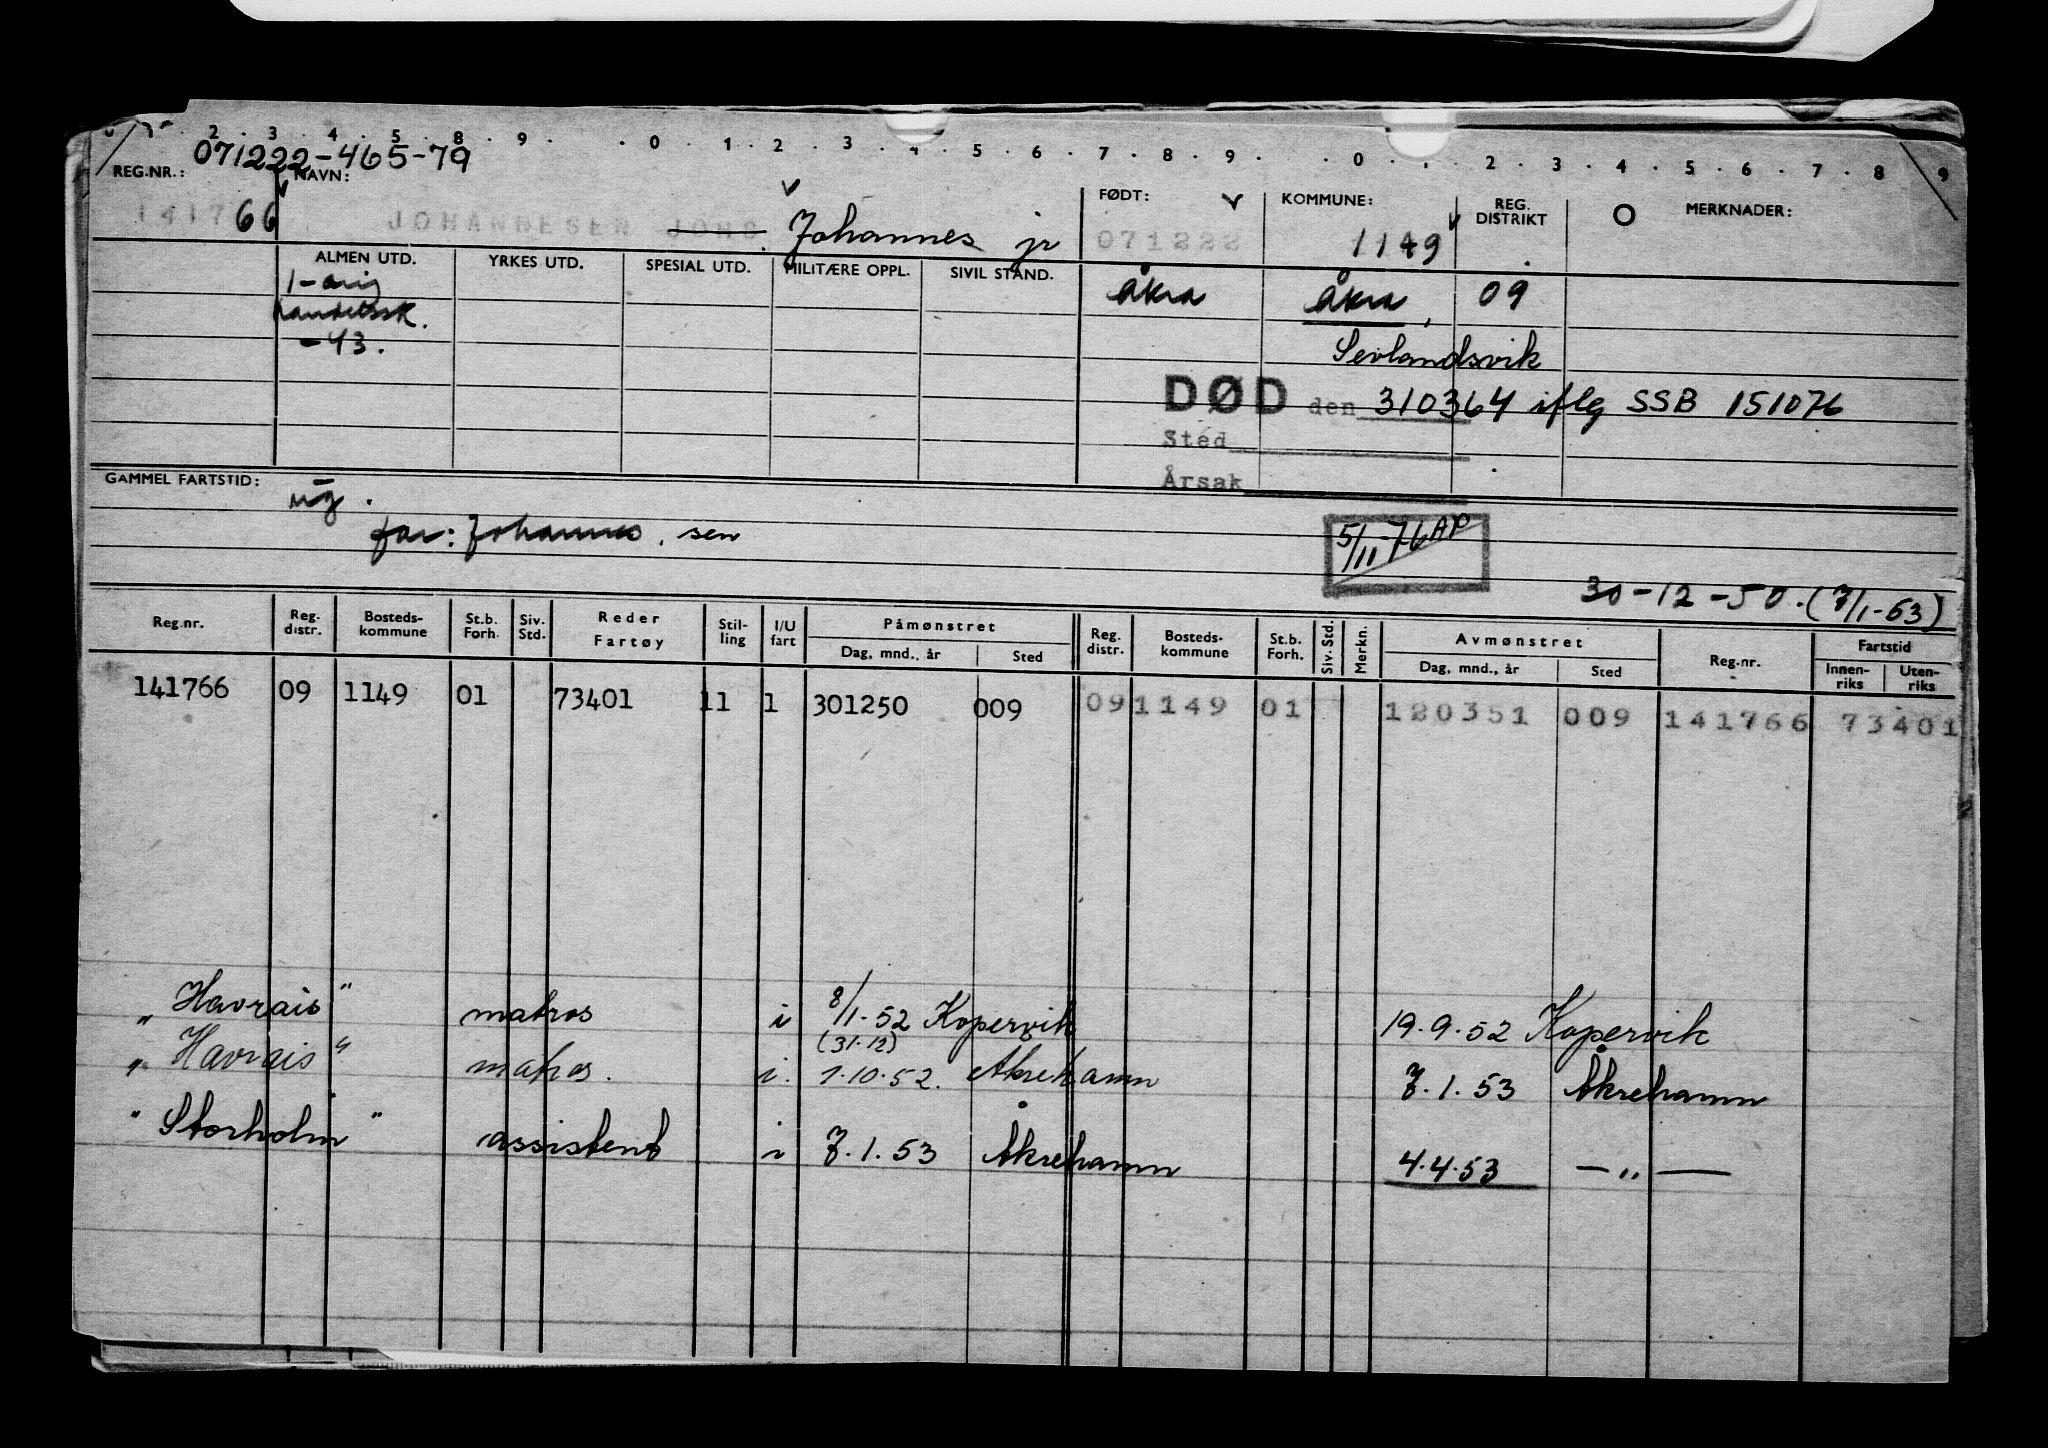 2 . 3 . 4 . 5 . 8 . 9 . . 0 . 1 . 2 . 3 . 4 . 5 . 6 . 7 . 8 . 9 . . 0 . . 2 . 3 . 4 . 5 . 6 . 7 . 8 . 9
071222-465-79
REG.NR.: NAVN: FØDT: KOMMUNE: REG. DISTRIKT MERKNADER:
141766 JOHANNESEN JOHS. Johannes jr 071222 1149
ALMEN UTD. YRKES UTD. SPESIAL UTD. MILITÆRE OPPL. SIVIL STAND.
1-årig Åkra Åkra, 09
handelssk.
-43. Sevlandsvik
DØD den 310364 iflg SSB 151076
Sted
Årsak
GAMMEL FARTSTID:
far: Johannes. sen
5/11-76 AP
30-12-50. (7/1-53)
Reg.nr. Reg. distr. Bosteds-kommune St.b. Forh. Siv. Std. Reder Fartøy Stil-ling I/U fart Påmønstret Dag, mnd., år Sted Reg. distr. Bosteds-kommune St.b. Forh. Siv. Std. Merkn. Avmønstret Dag, mnd., år Sted Reg.nr. Fartstid Innen-riks Uten-riks
141766 09 1149 01 73401 11 1 301250 009 09 1149 01 120351 009 141766 73401
"Havrais" matros i 8/1-52 Kopervik 19.9.52 Kopervik
(31.12)
"Havrais" matros. i. 1.10.52. Åkrehamn 7.1.53 Åkrehamn
"Storholm" assistent i 7.1.53 Åkrehamn 4.4.53 — " —